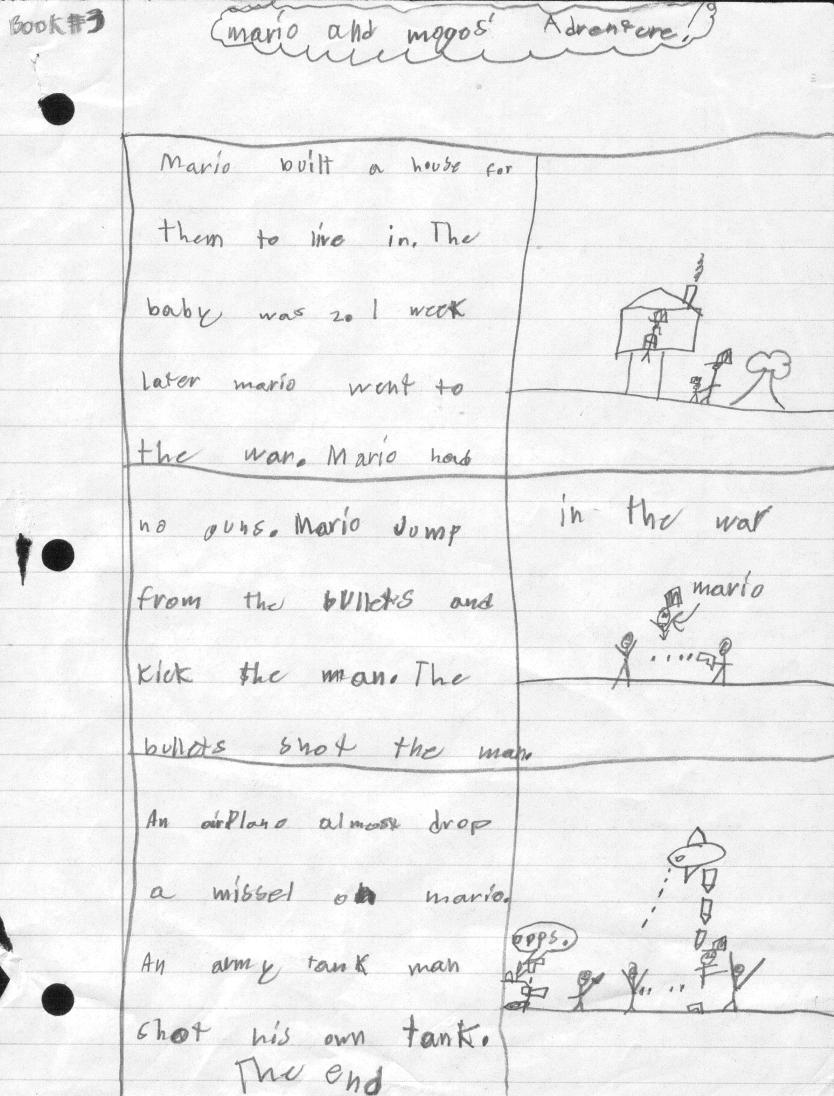 BOOK #3
mario and mogos' Adventere!
Mario built a house for
them to live in. The
baby was 2. 1 week
later mario went to
the war. Mario had
no guns. Mario Jump
from the bullets and
kick the man. The
bullets shot the man.
in the war
mario
An airPlane almost drop
a missel on mario.
An army tank man
shot his own tank.
The end
oops.